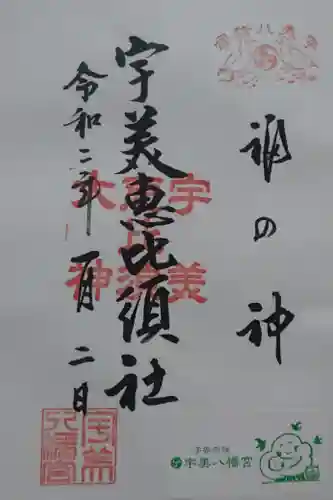 福の神
宇美恵比須社
令和二年一月二日
宇美
恵比須
大神
宇美八幡宮
子安の杜
宇美八幡宮